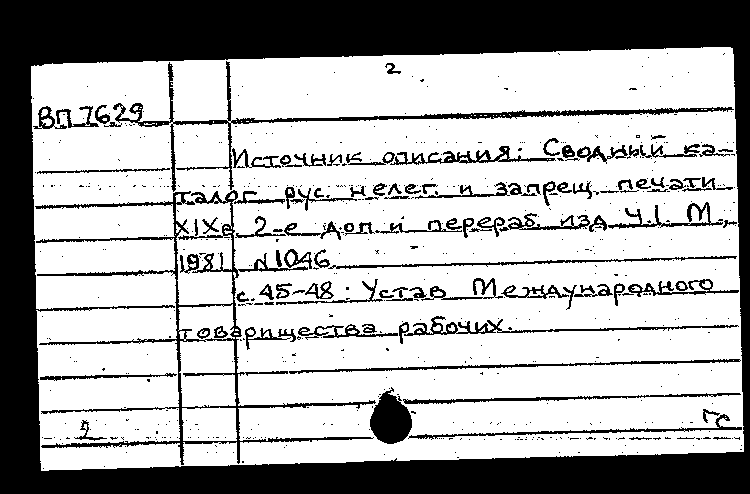 2
ВП 7629
Источник описания: Сводный ка-
талог рус. нелег. и запрещ. печати
XIXв. 2-е доп. и перераб. изд. Ч.I. М.,
1981, N1046.
с.45-48: Устав Международного
товарищества рабочих.
2
ГС